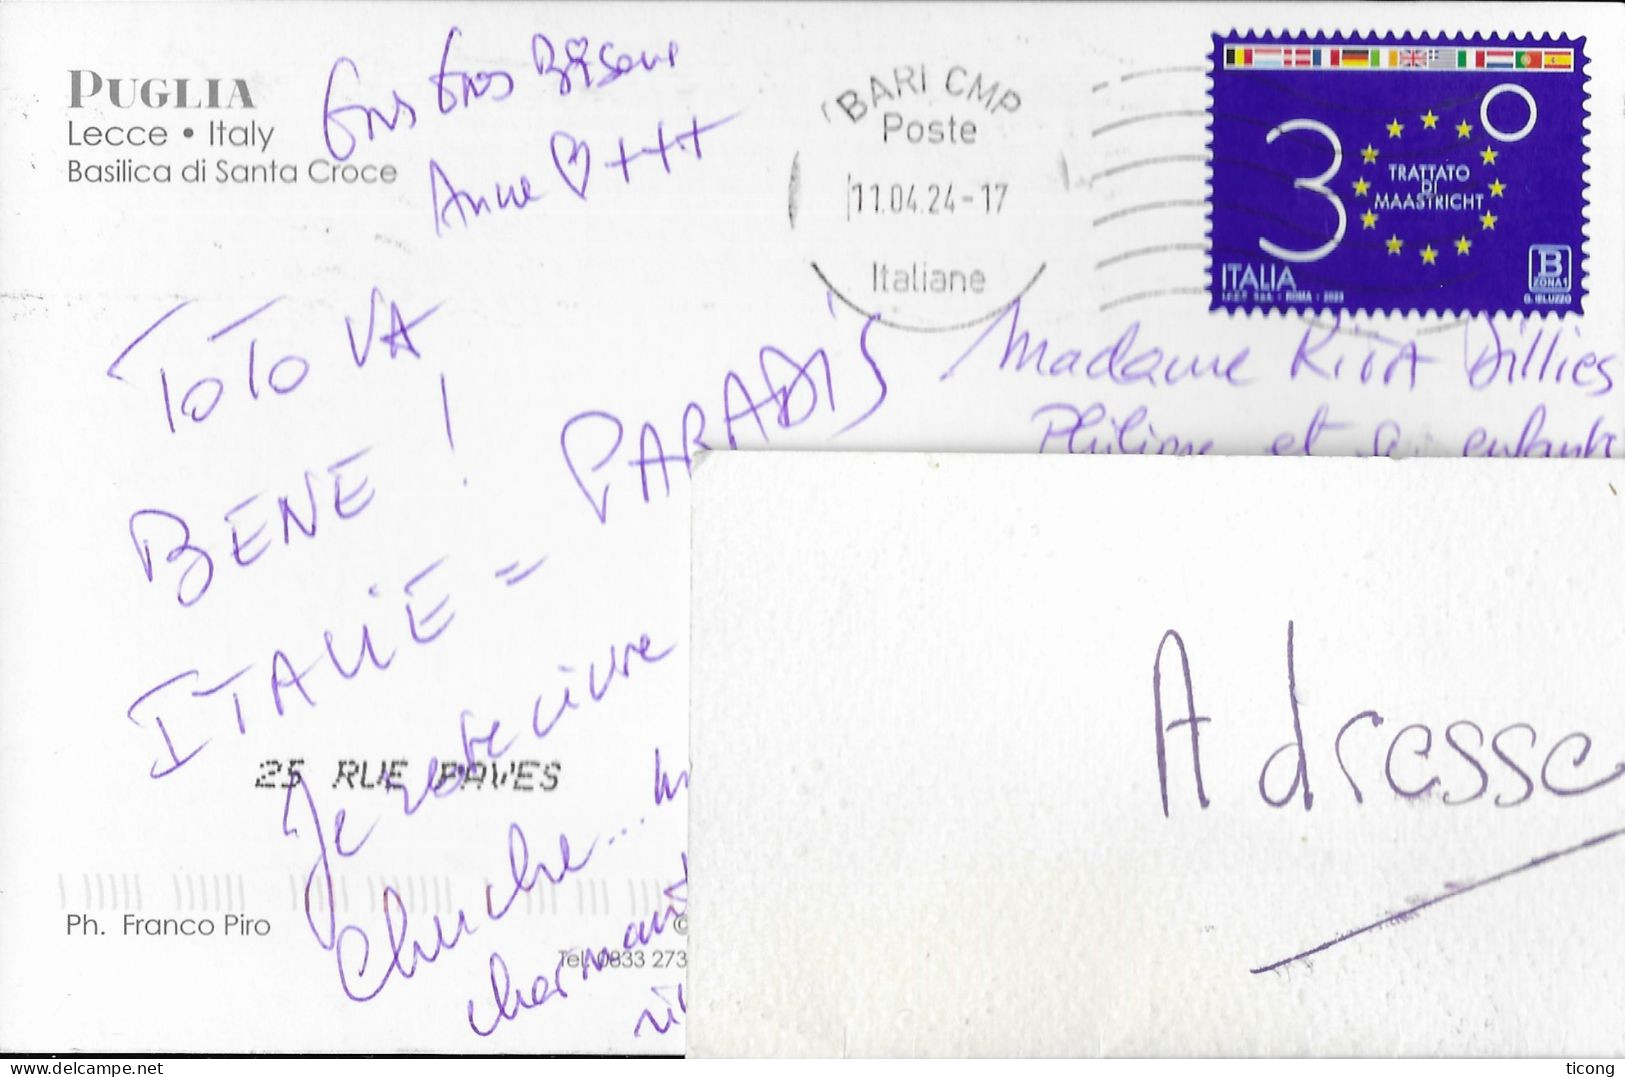 PUGLIA
Lecce • Italy
Basilica di Santa Croce
Gros Gros Bisous
Anne ♡ +++
BARI CMP
Poste
11.04.24-17
Italiane
30
TRATTATO
DI
MAASTRICHT
ITALIA
I.P.Z.S. S.p.A. - ROMA - 2023
B
ZONA 1
G. IELUZZO
Madame RITA Dillies
Philippe et enfants
TOTO VA
BENE !
ITALIE = PARADIS
25 RUE PAVES
Je
Chuche...
charmant
Ph. Franco Piro
©
Tel. 0833 273
Adresse
delcampe.net
ticong